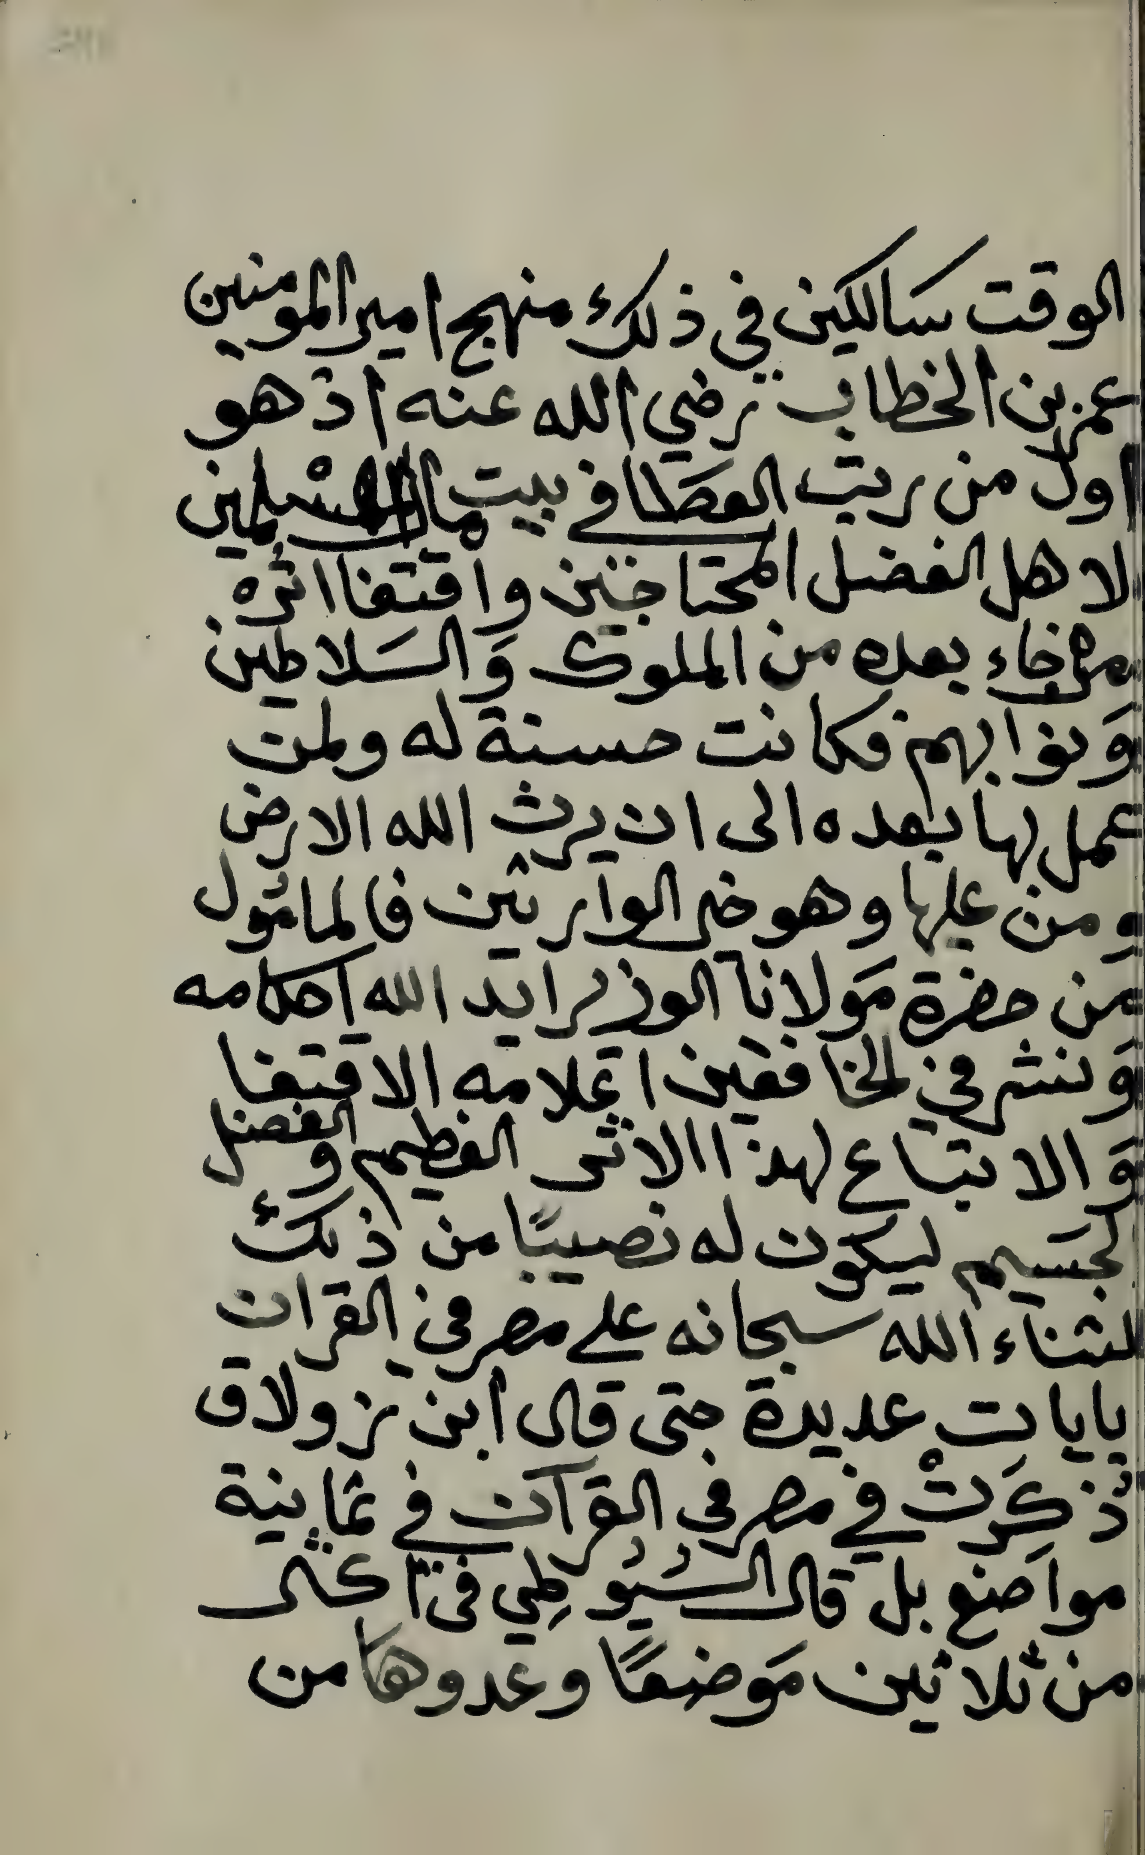 الوقت سالكين في ذلك منهج امير المومنين
عمر بن الخطاب رضي الله عنه اذ هو
اول من رتب العطا في بيت مال المسلمين
لاهل الفضل المحتاجين واقتفا اثره
من جاء بعده من الملوك وَالسَلاطين
وَنوابهم فكانت حسنة له ولمن
عمل بها بعده الى ان يرث الله الارض
ومن عليها وهو خير الوارثين فالمائمول
من حضرة مَولانا الوزير ايد الله احكامه
وَنشر في الخافقين اعلامه الاقتفا
وَالاتباع لهذا الاثر العظيم والفضل
الجسَيم ليكون له نصيبًا من ذلك
لثناء الله سبحانه على مصر في القران
بايات عديدة حتى قال ابن زولاق
ذُكِرَتْ في مصر في القرآن في ثمانية
مواضع بل قال السُيُوطي في اكثر
من ثلاثين مَوضعًا وعدوهَا من